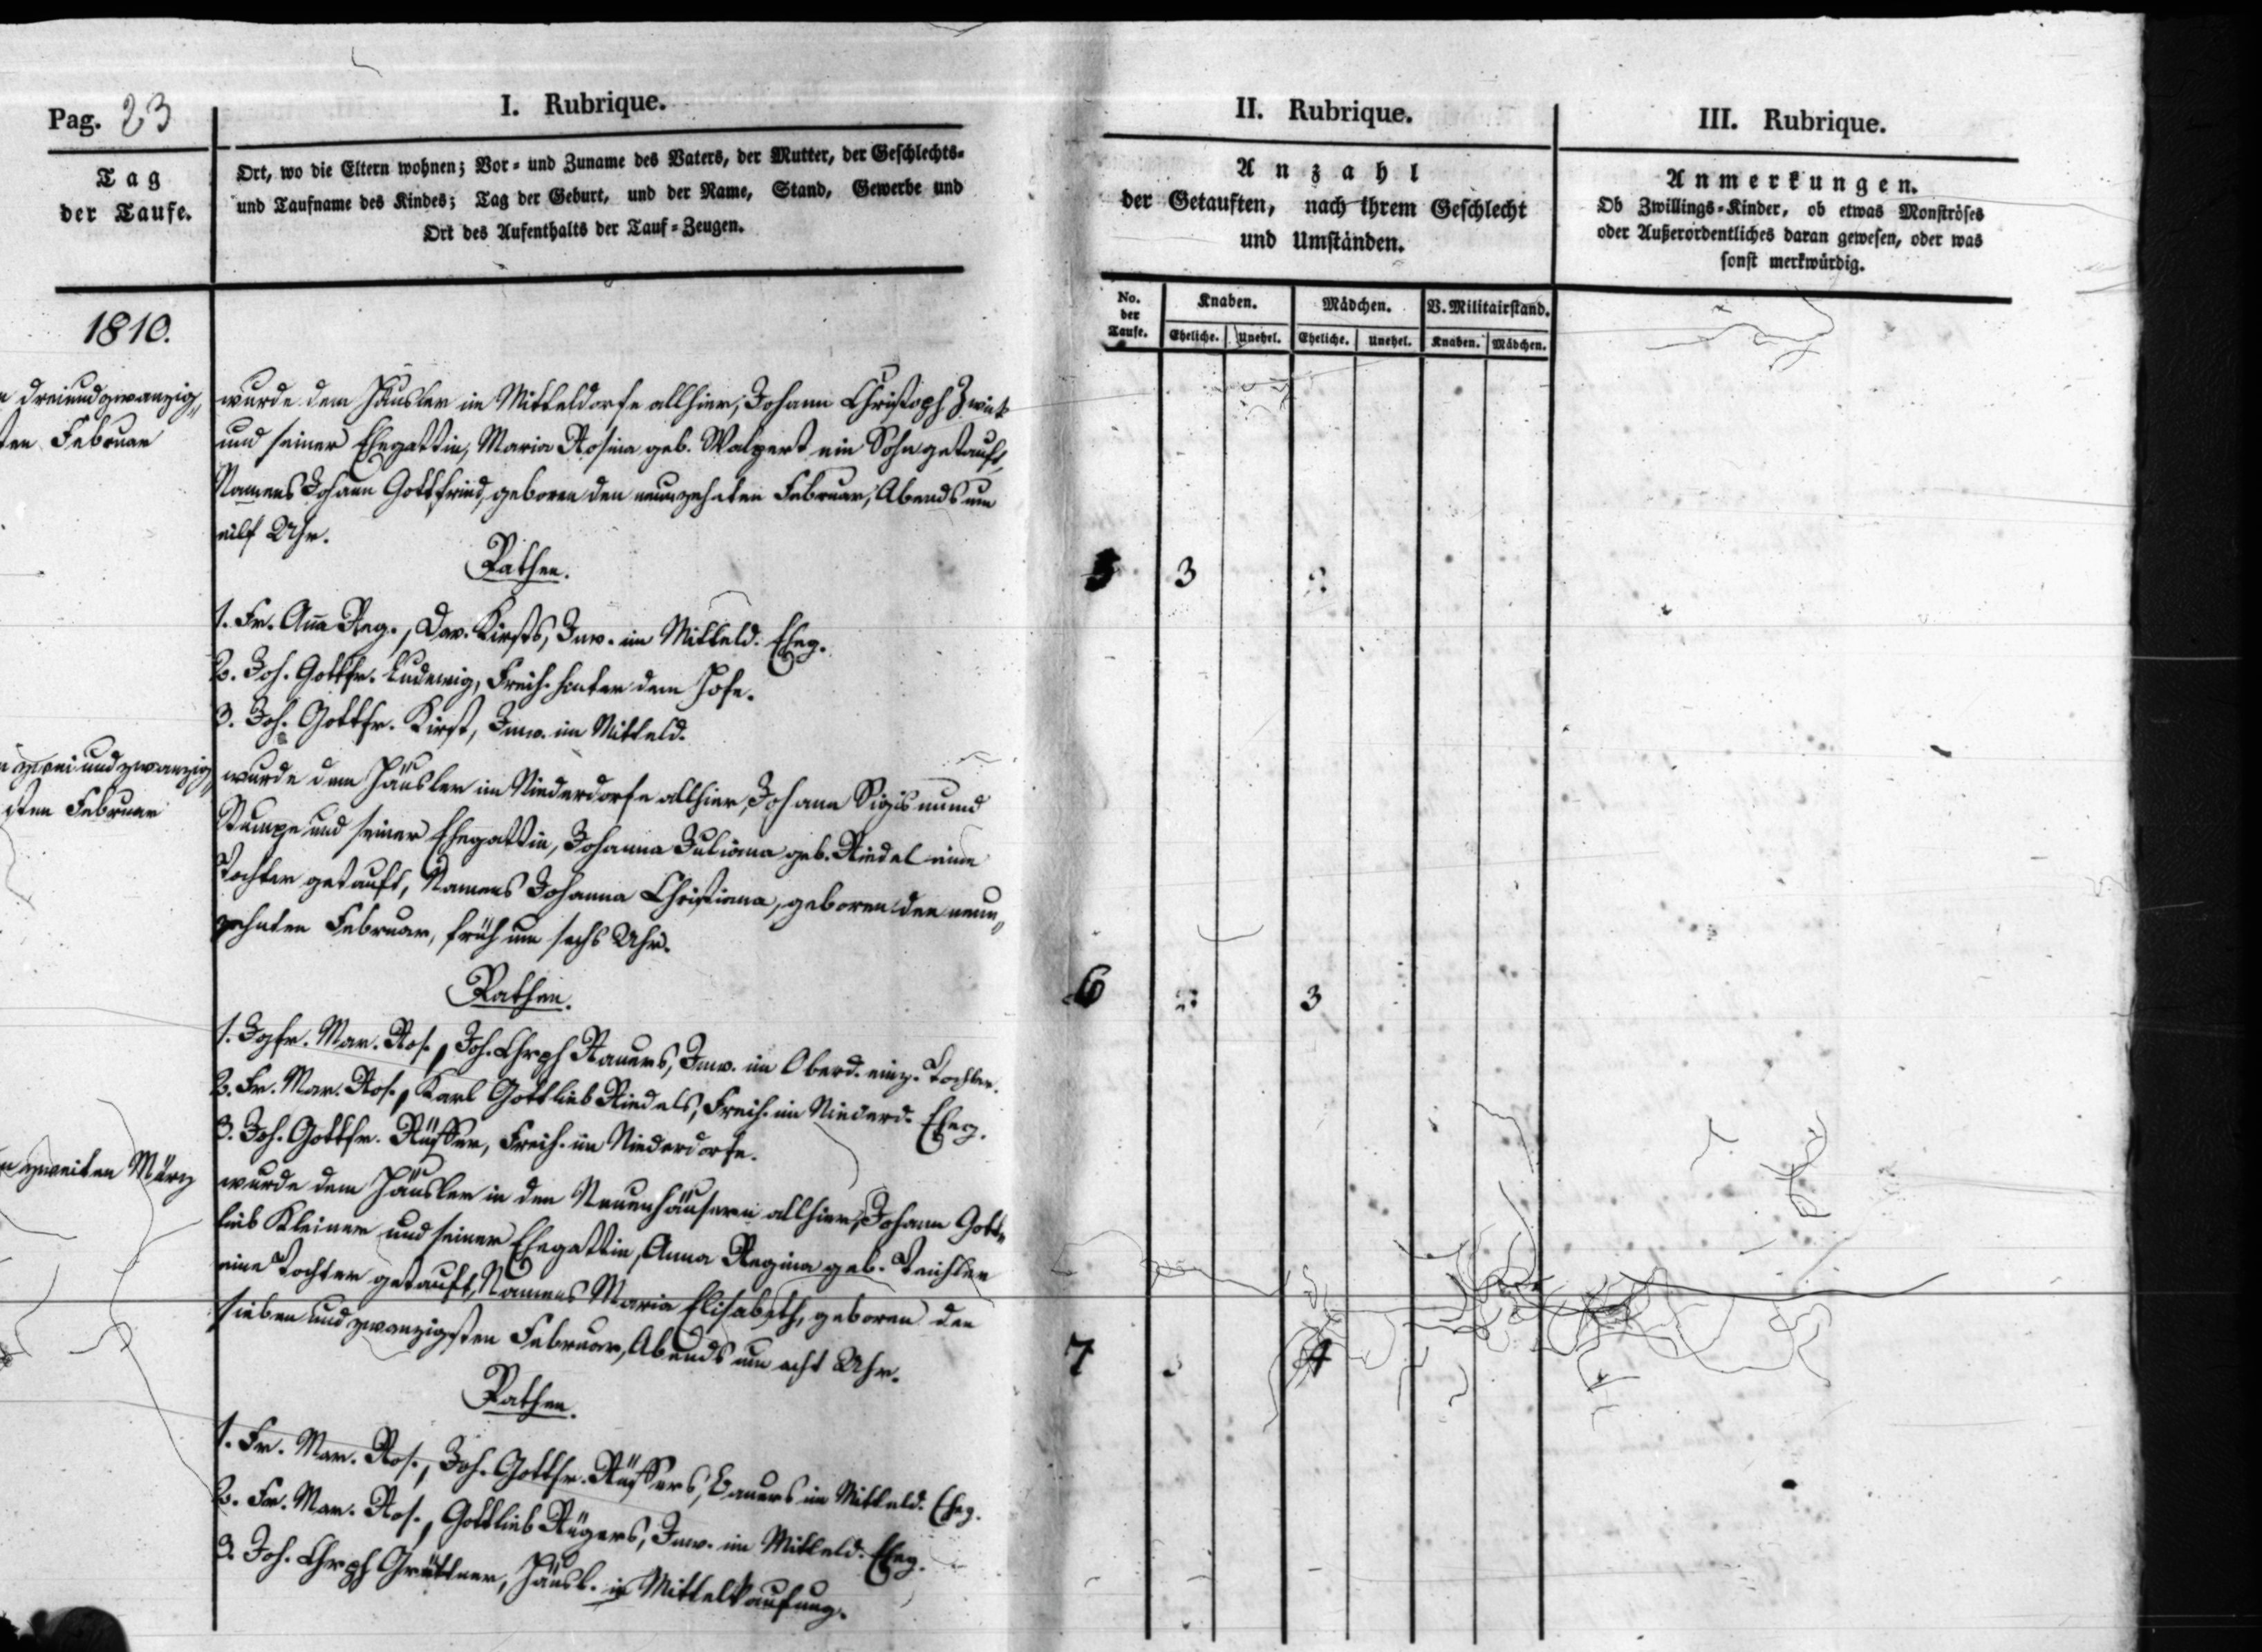 Pag. 23
I. Rubrique.
II. Rubrique.
III. Rubrique.
Tag
der Taufe.
Ort, wo die Eltern wohnen; Vor- und Zuname des Vaters, der Mutter, der Geschlechts-
und Taufname des Kindes; Tag der Geburt, und der Name, Stand, Gewerbe und
Ort des Aufenthalts der Tauf-Zeugen.
Anzahl
der Getauften, nach ihrem Geschlecht
und Umständen.
Anmerkungen.
Ob Zwillings-Kinder, ob etwas Monströses
oder Außerordentliches daran gewesen, oder was
sonst merkwürdig.
No.
der
Taufe.
Knaben.
Mädchen.
V. Militairstand.
Eheliche. Unehel. Eheliche. Unehel. Knaben. Mädchen.
1810.
dreiundzwanzig
sten Februar
wurde dem Häusler im Mitteldorfe allhier, Johann Christoph
und seiner Ehegattin, Maria Rosina geb. Walpert ein Sohn getauft,
Namens Johann Gottfried, geboren den neunzehnten Februar, Abends um
eilf Uhr.
Pathen.
5 3
1. Fr. Anna Reg., Dav. Kirsts, Inw. im Mitteld. Eheg.
2. Joh. Gottfr. Ludewig, Freih. hinter dem Hofe.
3. Joh. Gottfr. Kirst, Inw. im Mitteld.
zweiundzwanzig
sten Februar
wurde dem Häusler im Niederdorfe allhier, Johann Sigismund
Stumpe und seiner Ehegattin, Johanna Juliana geb. Riedel eine
Tochter getauft, Namens Johanna Christiana, geboren den neun
zehnten Februar, früh um sechs Uhr.
Pathen.
6 3
1. Jgfr. Mar. Ros., Joh. Chrph Rauers, Inw. im Oberd. einz. Tochter.
2. Fr. Mar. Ros., Karl Gottlieb Riedels, Freih. im Niederd. Eheg.
3. Joh. Gottfr. Rüffer, Freih. im Niederdorfe.
zweiten März
wurde dem Häusler in den Neuenhäusern allhier, Johann Gott
lieb Kleiner und seiner Ehegattin, Anna Regina geb. Teichler
eine Tochter getauft, Namens Maria Elisabeth, geboren den
siebenundzwanzigsten Februar, Abends um acht Uhr.
7 4
Pathen.
1. Fr. Mar. Ros., Joh. Gottfr. Rüffers, Bauers im Mitteld. Eheg.
2. Fr. Mar. Ros., Gottlieb Rügers, Inw. im Mitteld. Eheg.
3. Joh. Chrph Grüttner, Häusl. in Mittelkaufung.